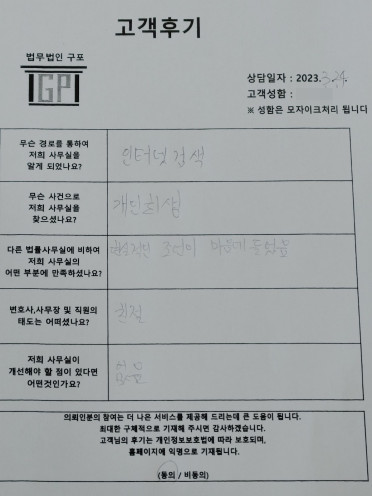 고객후기
법무법인 구포
IGPI
상담일자 : 2023. 3. 24.
고객성함 :
※ 성함은 모자이크처리 됩니다
무슨 경로를 통하여
저희 사무실을
알게 되었나요?
인터넷 검색
무슨 사건으로
저희 사무실을
찾으셨나요?
개인회생
다른 법률사무실에 비하여
저희 사무실의
어떤 부분에 만족하셨나요?
조언이 마음에 들었음
변호사,사무장 및 직원의
태도는 어떠셨나요?
친절
저희 사무실이
개선해야 할 점이 있다면
어떤것인가요?
의뢰인분의 참여는 더 나은 서비스를 제공해 드리는데 큰 도움이 됩니다.
최대한 구체적으로 기재해 주시면 감사하겠습니다.
고객님의 후기는 개인정보보호법에 따라 보호되며,
홈페이지에 익명으로 기재됩니다.
(동의 / 비동의)